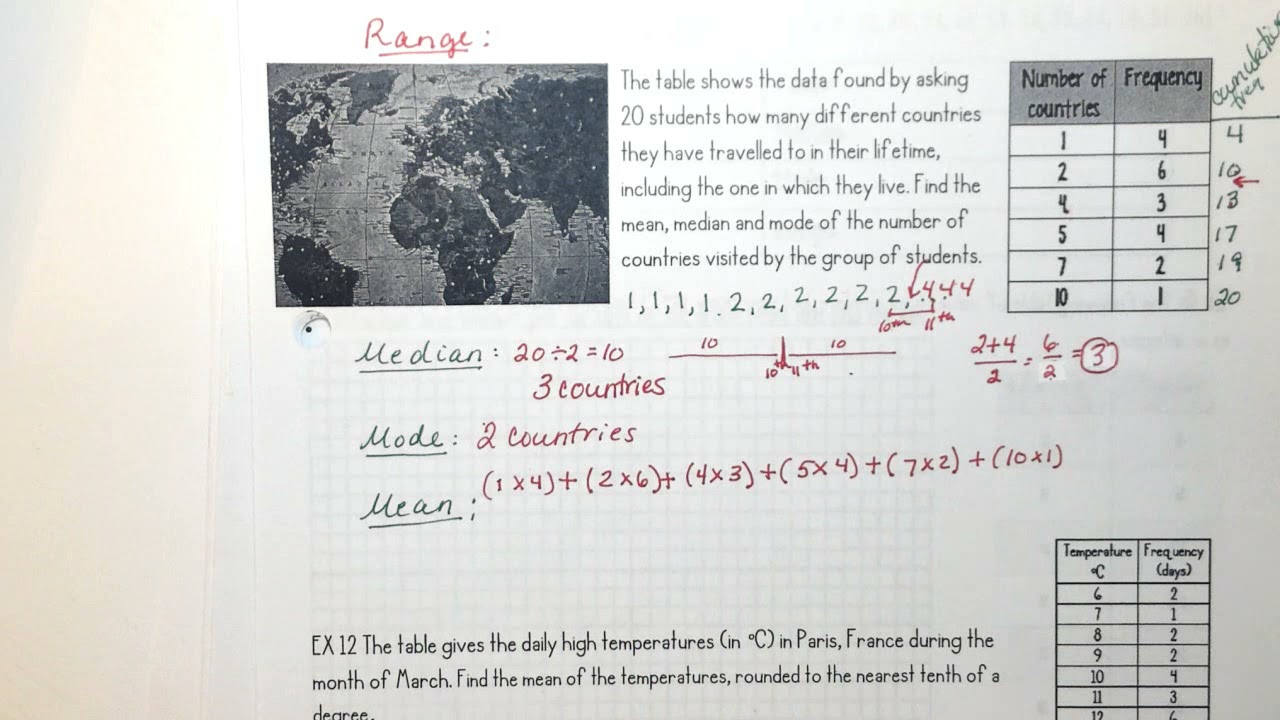 Range:
The table shows the data found by asking
20 students how many different countries
they have travelled to in their lifetime,
including the one in which they live. Find the
mean, median and mode of the number of
countries visited by the group of students.
Number of countries Frequency cumulative freq
1 4 4
2 6 10
4 3 13
5 4 17
7 2 19
10 1 20
1, 1, 1, 1. 2, 2, 2, 2, 2, 2, 4, 4 4
10th 11th
Median: 20÷2=10
10 10
10th 11th
2+4/2 = 6/2 = 3
3 countries
Mode: 2 countries
Mean: (1×4)+(2×6)+(4×3)+(5×4)+(7×2)+(10×1)
EX 12 The table gives the daily high temperatures (in °C) in Paris, France during the
month of March. Find the mean of the temperatures, rounded to the nearest tenth of a
degree.
Temperature °C Frequency (days)
6 2
7 1
8 2
9 2
10 4
11 3
12 6